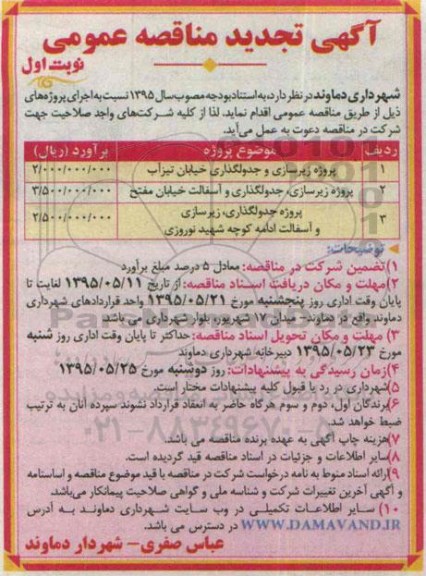 آگهی تجدید مناقصه عمومی
نوبت اول
شهرداری دماوند در نظر دارد، به استناد بودجه مصوب سال ۱۳۹۵ نسبت به اجرای پروژه های
ذیل از طریق مناقصه عمومی اقدام نماید. لذا از کلیه شرکت‌های واجد صلاحیت جهت
شرکت در مناقصه دعوت به عمل می‌آید.
ردیف موضوع پروژه برآورد (ریال)
۱ پروژه زیرسازی و جدولگذاری خیابان تیزآب ۲/۰۰۰/۰۰۰/۰۰۰
۲ پروژه زیرسازی، جدولگذاری و آسفالت خیابان مفتح ۳/۵۰۰/۰۰۰/۰۰۰
۳ پروژه جدولگذاری، زیرسازی
و آسفالت ادامه کوچه شهید نوروزی ۲/۵۰۰/۰۰۰/۰۰۰
توضیحات:
۱)تضمین شرکت در مناقصه: معادل ۵ درصد مبلغ برآورد
۲)مهلت و مکان دریافت اسناد مناقصه: از تاریخ ۱۳۹۵/۰۵/۱۱ لغایت تا
پایان وقت اداری روز پنجشنبه مورخ ۱۳۹۵/۰۵/۲۱ واحد قراردادهای شهرداری
دماوند واقع در دماوند- میدان ۱۷ شهریور، بلوار شهرداری می باشد
۳) مهلت و مکان تحویل اسناد مناقصه: حداکثر تا پایان وقت اداری روز شنبه
مورخ ۱۳۹۵/۰۵/۲۳ دبیرخانه شهرداری دماوند
۴)زمان رسیدگی به پیشنهادات: روز دوشنبه مورخ ۱۳۹۵/۰۵/۲۵
۵)شهرداری در رد یا قبول کلیه پیشنهادات مختار است.
۶)برندگان اول، دوم و سوم هرگاه حاضر به انعقاد قرارداد نشوند سپرده آنان به ترتیب
ضبط خواهد شد.
۷)هزینه چاپ آگهی به عهده برنده مناقصه می باشد.
۸)سایر اطلاعات و جزئیات در اسناد مناقصه قید گردیده است.
۹)ارائه اسناد منوط به نامه درخواست شرکت در مناقصه با قید موضوع مناقصه و اساسنامه
و آگهی آخرین تغییرات شرکت و شناسه ملی و گواهی صلاحیت پیمانکار می‌باشد.
۱۰) سایر اطلاعات تکمیلی در وب سایت شهرداری دماوند به آدرس
WWW.DAMAVAND.IR در دسترس می باشد.
عباس صفری- شهردار دماوند
۰۲۱-۸۸۳۴۹۶۷۰-۵